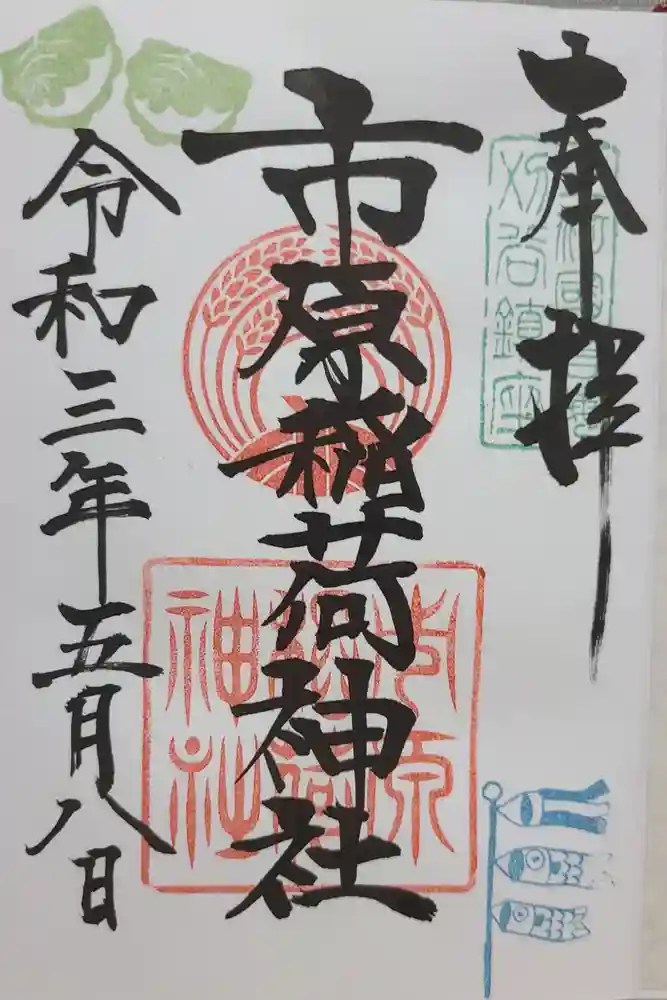 奉拝
刈谷鎮座
市原稲荷神社
市原
稲荷
神社
令和三年五月八日